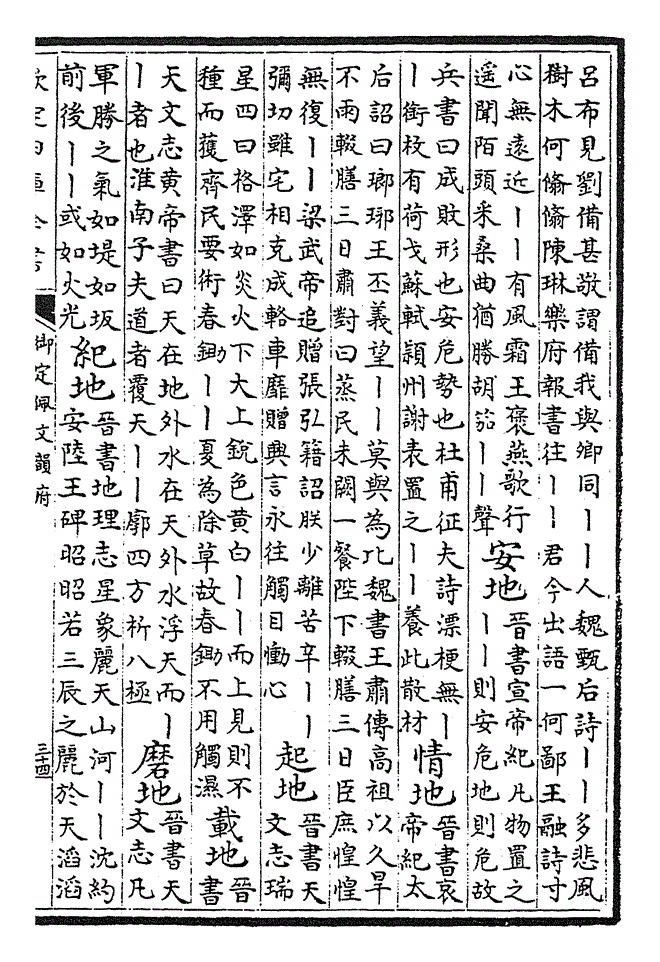 呂布見劉備甚敬謂備我與卿同丨丨人魏甄后詩丨丨多悲風
樹木何翛翛陳琳樂府報書往丨丨君今出語一何鄙王融詩寸
心無遠近丨丨有風霜王褒燕歌行
遥聞陌頭采桑曲猶勝胡笳丨丨聲
安地
晉書宣帝紀凡物置之
丨丨則安危地則危故
兵書曰成敗形也安危勢也杜甫征夫詩漂梗無丨
丨銜枚有荷戈蘇軾潁州謝表置之丨丨養此散材
情地
晉書哀
帝紀太
后詔曰瑯琊王丕義望丨丨莫與為比魏書王肅傳高祖以久旱
不雨輟膳三日肅對曰蒸民未闕一餐陛下輟膳三日臣庶惶惶
無復丨丨梁武帝追贈張弘籍詔朕少離苦辛丨丨
彌切雖宅相克成輅車靡贈興言永往觸目慟心
起地
晉書天
文志瑞
星四曰格澤如炎火下大上銳色黄白丨丨而上見則不
種而獲齊民要術春鋤丨丨夏為除草故春鋤不用觸濕
載地
晉
書
天文志黄帝書曰天在地外水在天外水浮天而丨
丨者也淮南子夫道者覆天丨丨廓四方析八極
磨地
晉書天
文志凡
軍勝之氣如堤如坂
前後丨丨或如火光
紀地
晉書地理志星象麗天山河丨丨沈約
安陸王碑昭昭若三辰之麗於天滔滔
欽定四庫全書
御定佩文韻府
三十四